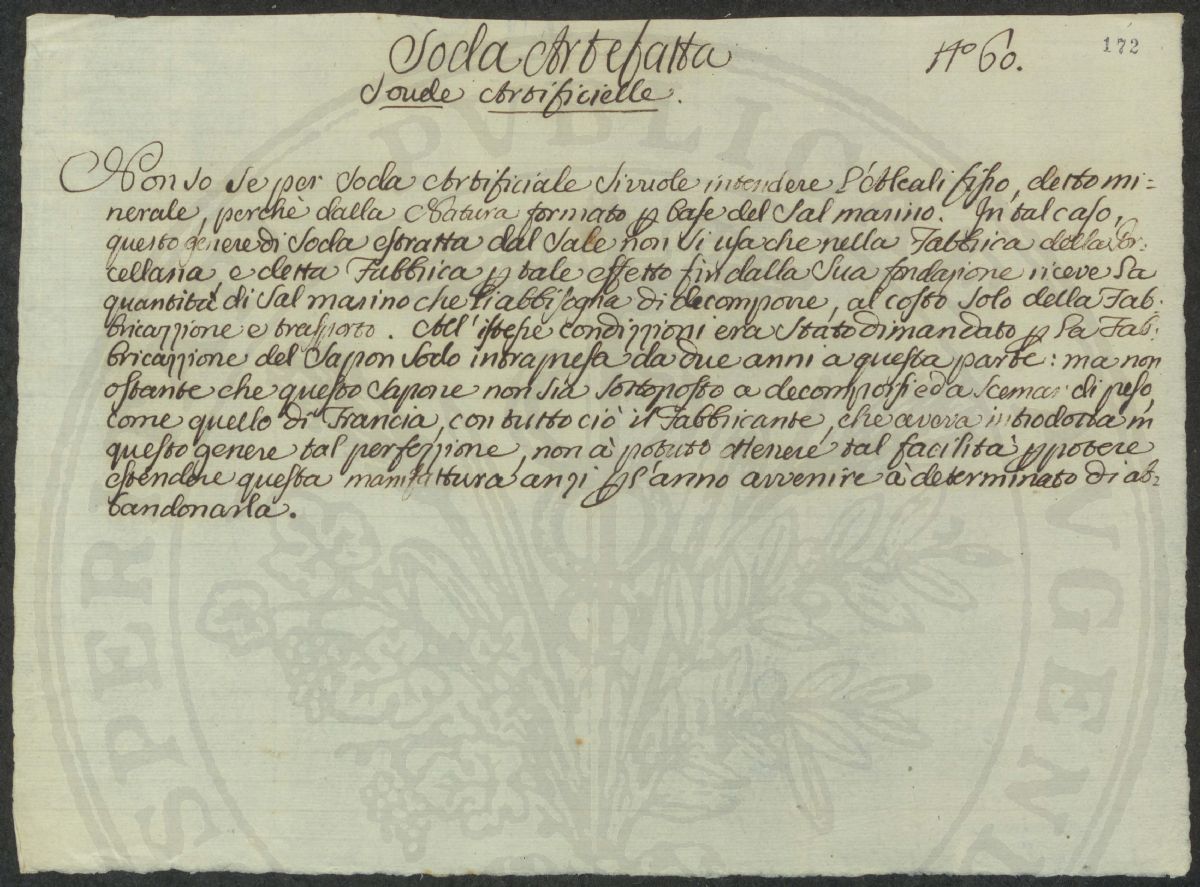 Soda Artefatta
N.º 60.
172
Soude Artificielle.
Non so se per Soda Artificiale si vuole intendere l'Alcali fisso, detto mi=
nerale, perchè dalla Natura formato p base del Sal marino. In tal caso,
questo genere di Soda estratta dal Sale non si usa che nella Fabbrica della Por:
cellana, e detta Fabbrica p tale effetto fin dalla Sua fondazione riceve la
quantità di Sal marino che l'abbisogna di decomporre, al costo solo della Fab:
bricazzione e trasporto. All'istesse condizzioni era stato dimandato p la Fab:
bricazzione del Sapon Sodo intrapresa da due anni a questa parte: ma non
ostante che questo Sapone non sia sottoposto a decomporsi ed a scemar di peso,
come quello di Francia, con tutto ciò il Fabbricante, che aveva introdotta in
questo genere tal perfezzione, non à potuto ottenere tal facilità p potere
estendere questa manifattura anzi p l'anno avvenire à determinato di ab=
bandonarla.
SPERAT
PVBLICA
VGENI